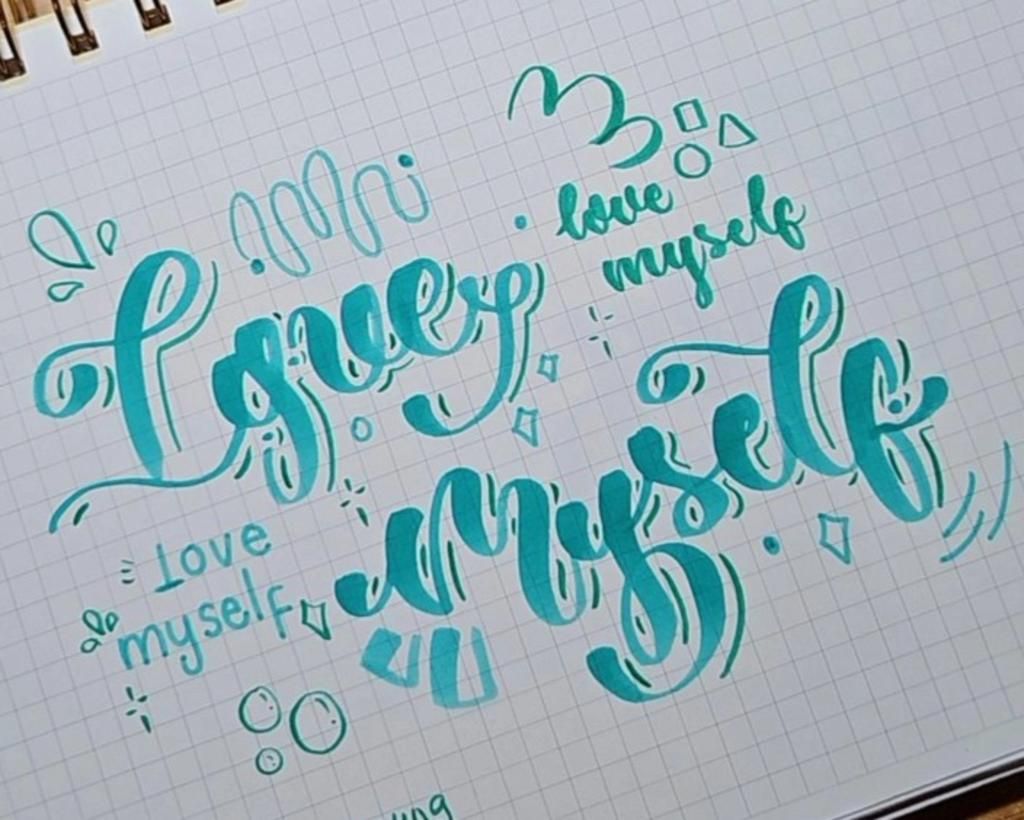 love
myself
Love
myself
Love
myself